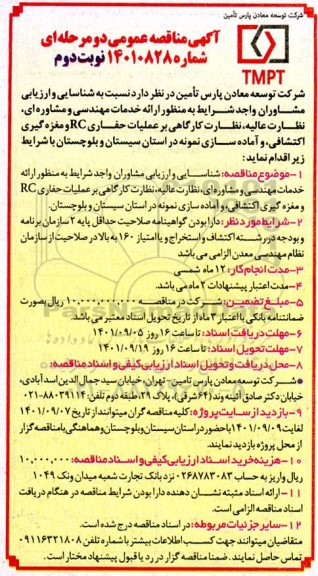 شرکت توسعه معادن پارس تأمین
آگهی مناقصه عمومی دو مرحله ای
شماره ۱۴۰۱۰۸۲۸ نوبت دوم
TMPT
شرکت توسعه معادن پارس تأمین در نظر دارد نسبت به شناسایی و ارزیابی
مشاوران واجد شرایط به منظور ارائه خدمات مهندسی و مشاوره ای،
نظارت عالیه، نظارت کارگاهی بر عملیات حفاری RC و مغزه گیری
اکتشافی، و آماده سازی نمونه در استان سیستان و بلوچستان با شرایط
زیر اقدام نماید:
۱- موضوع مناقصه: شناسایی و ارزیابی مشاوران واجد شرایط به منظور ارائه
خدمات مهندسی و مشاوره ای، نظارت عالیه، نظارت کارگاهی بر عملیات حفاری RC
و مغزه گیری اکتشافی، و آماده سازی نمونه در استان سیستان و بلوچستان.
۲- شرایط مورد نظر: دارا بودن گواهینامه صلاحیت حداقل پایه ۲ سازمان برنامه
و بودجه در رشته اکتشاف و استخراج و یا امتیاز ۱۶۰ به بالا در صلاحیت از سازمان
نظام مهندسی معدن الزامی می باشد
۳- مدت انجام کار: ۱۲ ماه شمسی
۴- مدت اعتبار پیشنهادات ۲ ماه می باشد.
۵- مبلغ تضمین: شرکت در مناقصه ۱۰,۰۰۰,۰۰۰,۰۰۰ ریال بصورت
ضمانتنامه بانکی با اعتبار ۳ ماه از تاریخ تحویل اسناد معتبر می باشد.
۶- مهلت دریافت اسناد: تا ساعت ۱۶ روز ۱۴۰۱/۰۹/۰۵
۷- مهلت تحویل اسناد: تا ساعت ۱۶ روز ۱۴۰۱/۰۹/۱۹
۸- محل دریافت و تحویل اسناد ارزیابی کیفی و اسناد مناقصه:
• شرکت توسعه معادن پارس تامین - تهران، خیابان سید جمال الدین اسدآبادی،
خیابان دکتر صادق آئینه وند (۶۴ شرقی)، پلاک ۲۹، طبقه دوم تلفن: ۸۸۰۳۹۱۱۴-۰۲۱
۹- بازدید از سایت پروژه: کلیه مناقصه گران میتوانند از تاریخ ۱۴۰۱/۰۹/۰۷
لغایت ۱۴۰۱/۰۹/۰۹ با حضور در استان سیستان و بلوچستان و هماهنگی با مناقصه گزار
از محل پروژه بازدید نمایند.
۱۰- هزینه خرید اسناد ارزیابی کیفی و اسناد مناقصه: ۱۰,۰۰۰,۰۰۰
ریال واریز به حساب ۲۶۸۷۸۳۰۸۳ نزد بانک تجارت شعبه میدان ونک ۱۰۴۹
۱۱- ارائه اسناد مثبته نشان دهنده دارا بودن شرایط مناقصه در هنگام دریافت
اسناد مناقصه الزامی است.
۱۲- سایر جزئیات مربوطه: در اسناد مناقصه درج شده است.
متقاضیان میتوانند جهت کسب اطلاعات بیشتر با شماره تلفن ۰۹۱۱۶۳۲۱۸۰۸
تماس حاصل نمایند. ضمنا مناقصه گزار در رد یا قبول پیشنهاد مختار است.